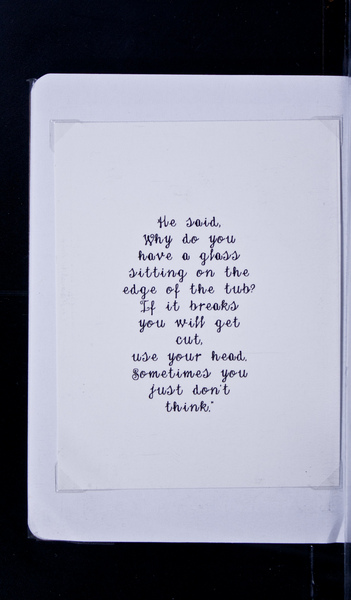 He said,
Why do you
have a glass
sitting on the
edge of the tub?
If it breaks
you will get
cut,
use your head.
Sometimes you
just don't
think."